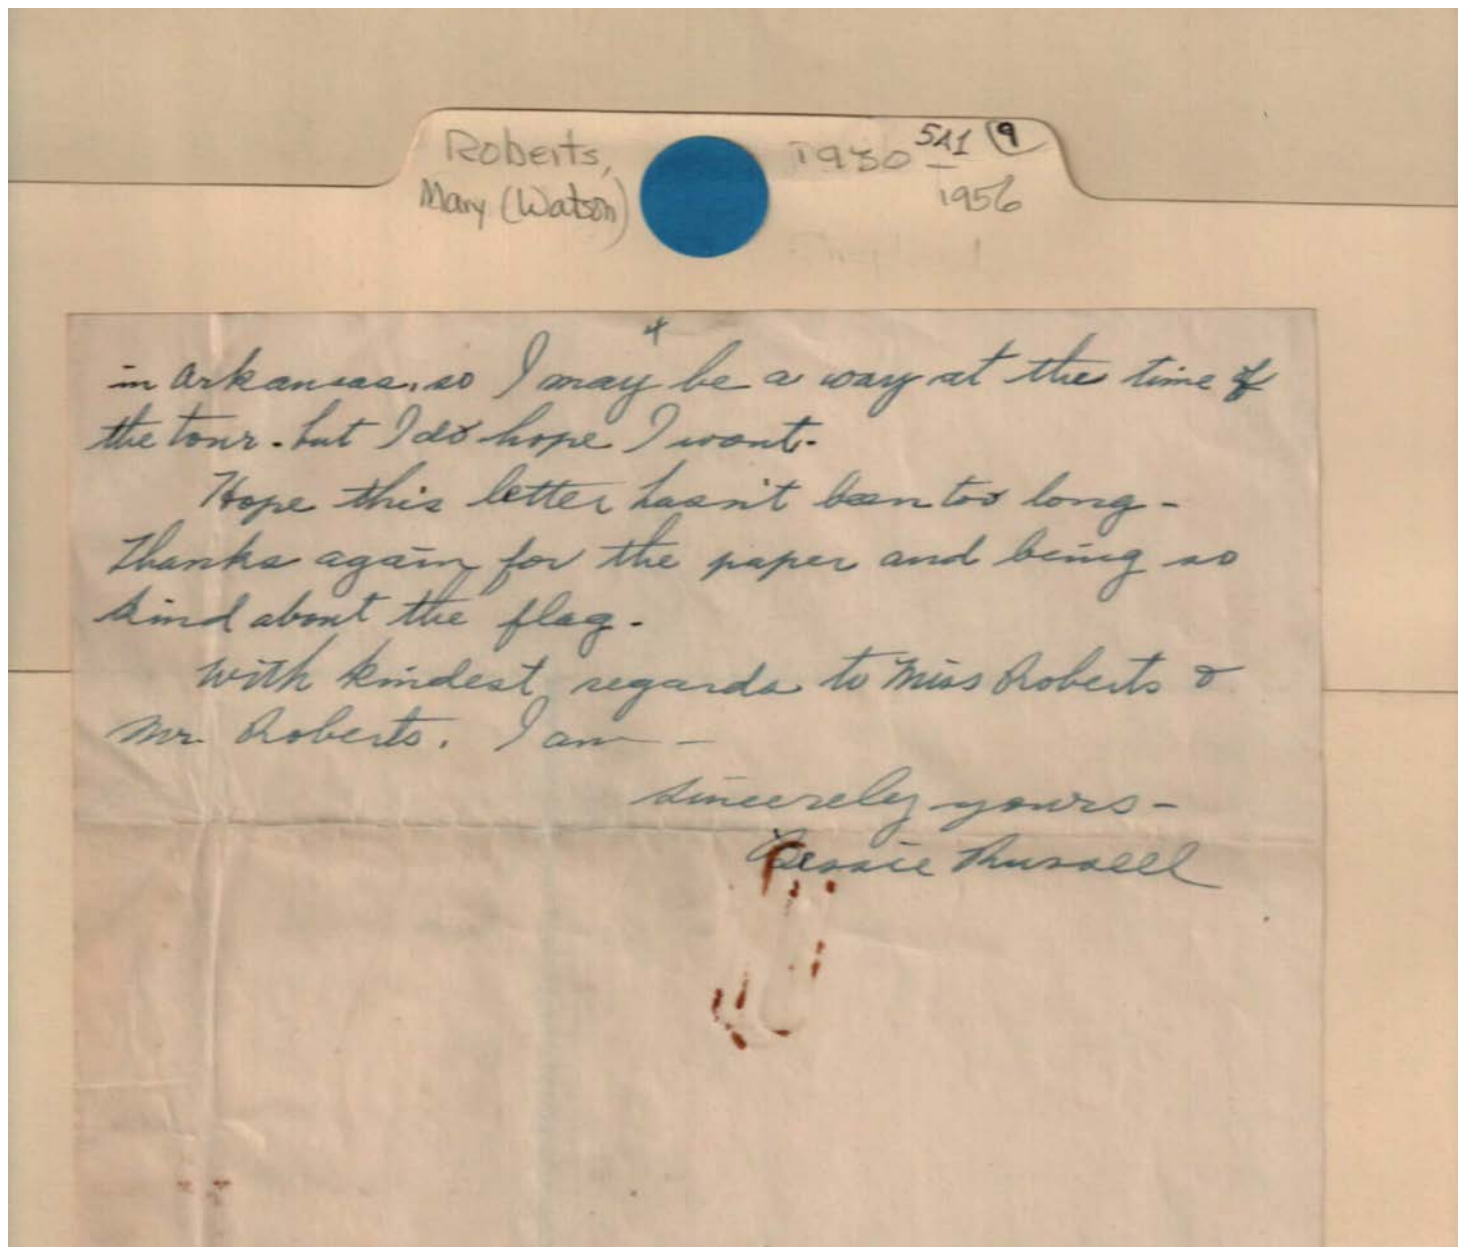 Roberts,
Mary (Watson)
1930 -
1956
5A1 9
4
in Arkansas, so I may be a way at the time of
the tour - but I do hope I wont.
Hope this letter hasn't been too long -
Thanks again for the paper and being so
kind about the flag -
With kindest regards to Miss Roberts &
Mr. Roberts. I am -
Sincerely yours -
Bessie Russell